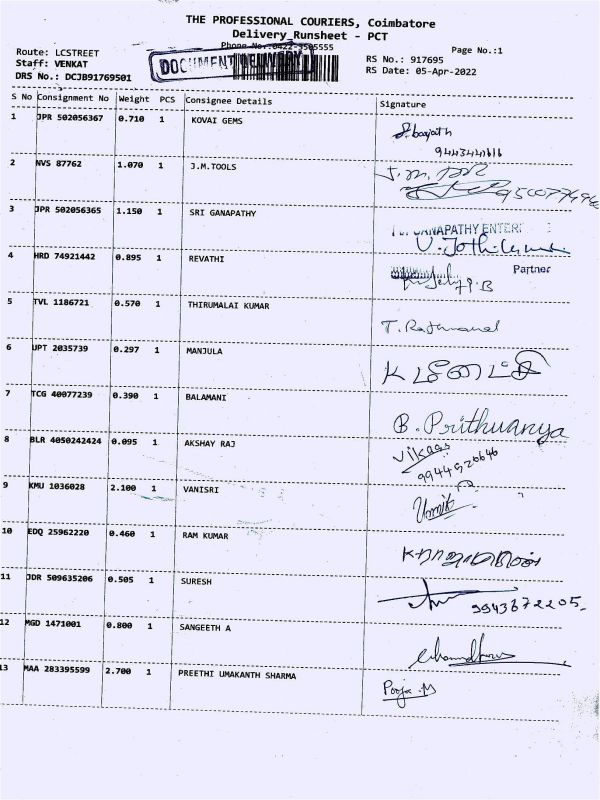 THE PROFESSIONAL COURIERS, Coimbatore
Delivery Runsheet - PCT
Phone No.:0422-3505555 Page No.:1
Route: LCSTREET RS No.: 917695
Staff: VENKAT DOCUMENT DELIVERY RS Date: 05-Apr-2022
DRS No.: DCJB91769501
S No Consignment No Weight PCS Consignee Details Signature
1 JPR 502056367 0.710 1 KOVAI GEMS
2 NVS 87762 1.070 1 J.M.TOOLS
3 JPR 502056365 1.150 1 SRI GANAPATHY
GANAPATHY ENTER
4 HRD 74921442 0.895 1 REVATHI Partner
5 TVL 1186721 0.570 1 THIRUMALAI KUMAR
6 UPT 2035739 0.297 1 MANJULA
7 TCG 40077239 0.390 1 BALAMANI
B. Prithuanya
8 BLR 4050242424 0.095 1 AKSHAY RAJ
Vikaas
9944520646
9 KMU 1036028 2.100 1 VANISRI
10 EDQ 25962220 0.460 1 RAM KUMAR
11 JDR 509635206 0.505 1 SURESH
9943672205
12 MGD 1471001 0.800 1 SANGEETH A
13 MAA 283395599 2.700 1 PREETHI UMAKANTH SHARMA
Pooja .M